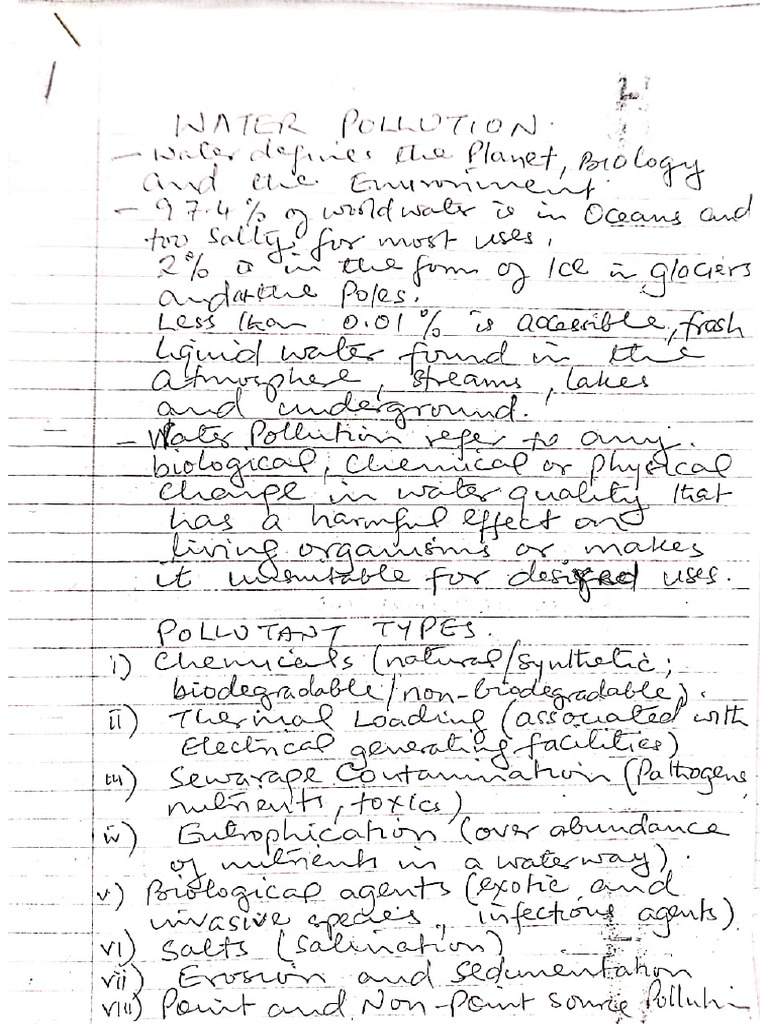 WATER POLLUTION.
- Water defines the Planet, Biology
and the Environment.
- 97.4% of world water is in Oceans and
too salty for most uses.
2% is in the form of Ice in glaciers
and at the Poles.
Less than 0.01% is accessible, fresh
liquid water found in the
atmosphere, streams, lakes
and underground.
- Water Pollution refer to any
biological, chemical or physical
change in water quality that
has a harmful effect on
living organisms or makes
it unsuitable for desired uses.
POLLUTANT TYPES.
i) Chemicals (natural/synthetic;
biodegradable/non-biodegradable).
ii) Thermal Loading (associated with
Electrical generating facilities)
iii) Sewarage Contamination (Pathogens,
nutrients, toxics)
iv) Eutrophication (over abundance
of nutrients in a waterway).
v) Biological agents (exotic and
invasive species, infectious agents)
vi) Salts (Salination)
vii) Erosion and Sedimentation
viii) Point and Non-Point Source Polluti